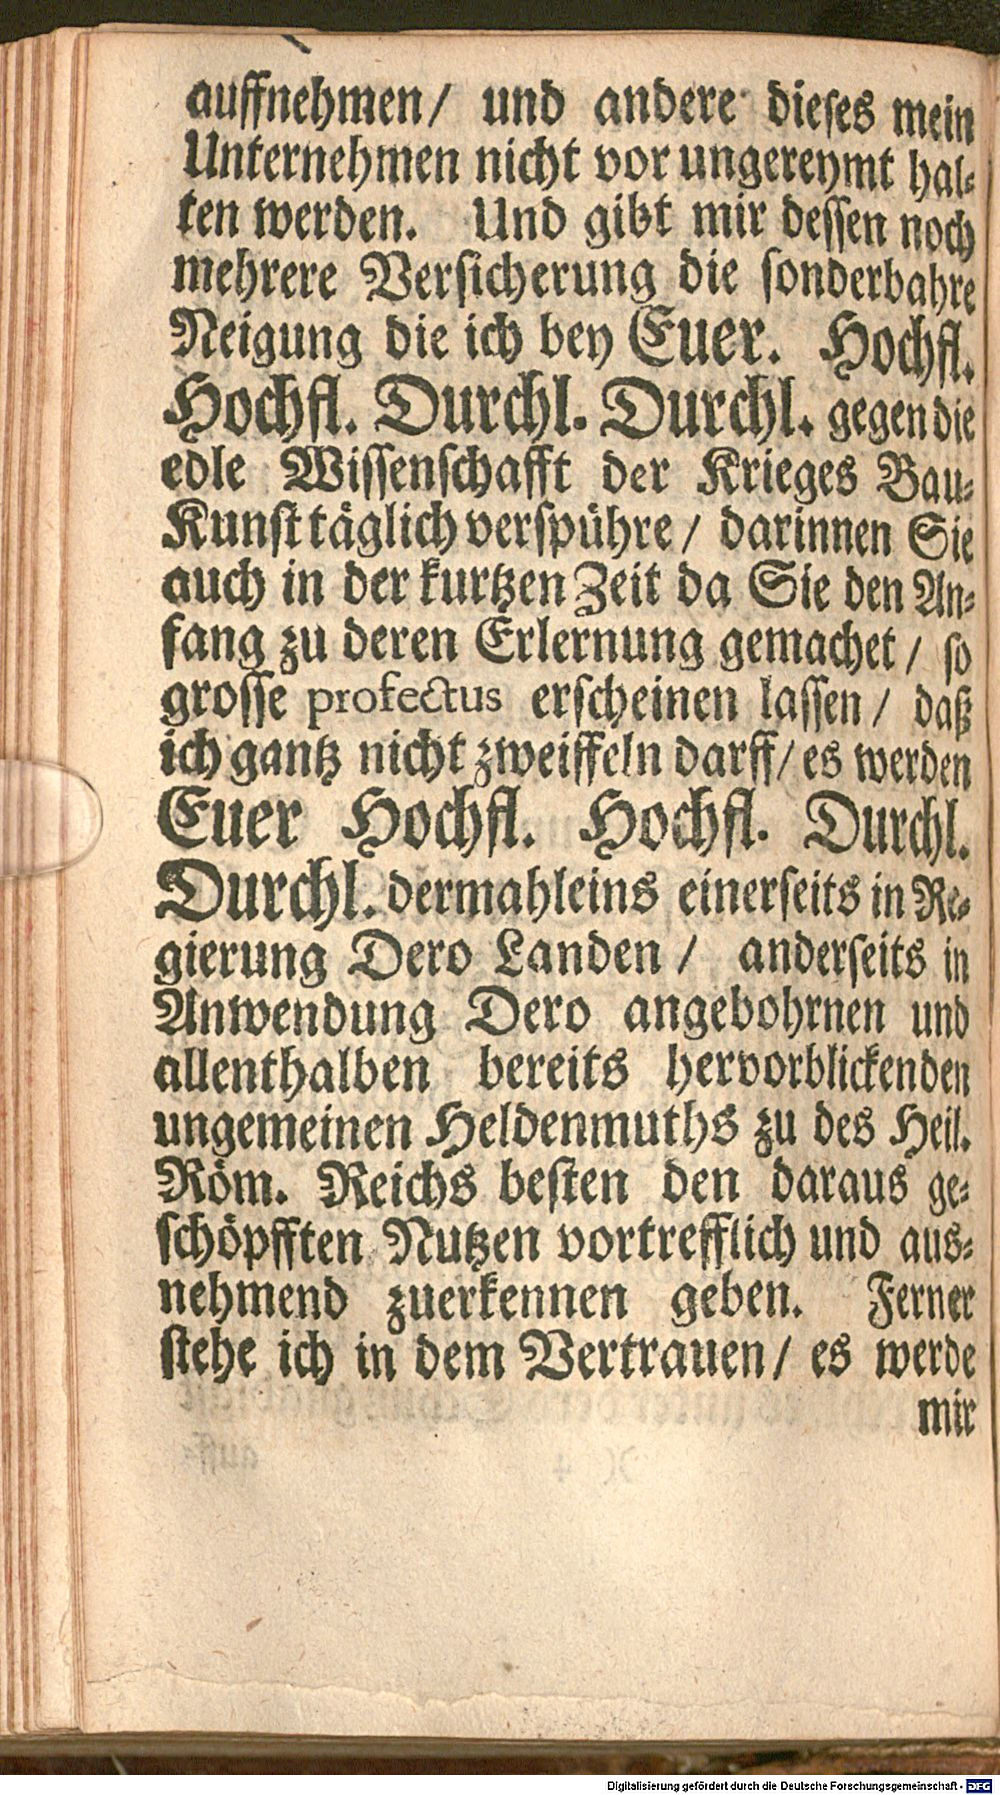 auffnehmen/ und andere dieses mein
Unternehmen nicht vor ungereymt hal-
ten werden. Und gibt mir dessen noch
mehrere Versicherung die sonderbahre
Neigung die ich bey Euer. Hochfl.
Hochfl. Durchl. Durchl. gegen die
edle Wissenschafft der Krieges Bau-
Kunst täglich verspühre/ darinnen Sie
auch in der kurtzen Zeit da Sie den An-
fang zu deren Erlernung gemachet/ so
grosse profectus erscheinen lassen/ daß
ich gantz nicht zweiffeln darff/ es werden
Euer Hochfl. Hochfl. Durchl.
Durchl. dermahleins einerseits in Re-
gierung Dero Landen/ anderseits in
Anwendung Dero angebohrnen und
allenthalben bereits hervorblickenden
ungemeinen Heldenmuths zu des Heil.
Röm. Reichs besten den daraus ge-
schöpfften Nutzen vortrefflich und aus-
nehmend zuerkennen geben. Ferner
stehe ich in dem Vertrauen/ es werde
mir
Digitalisierung gefördert durch die Deutsche Forschungsgemeinschaft - DFG